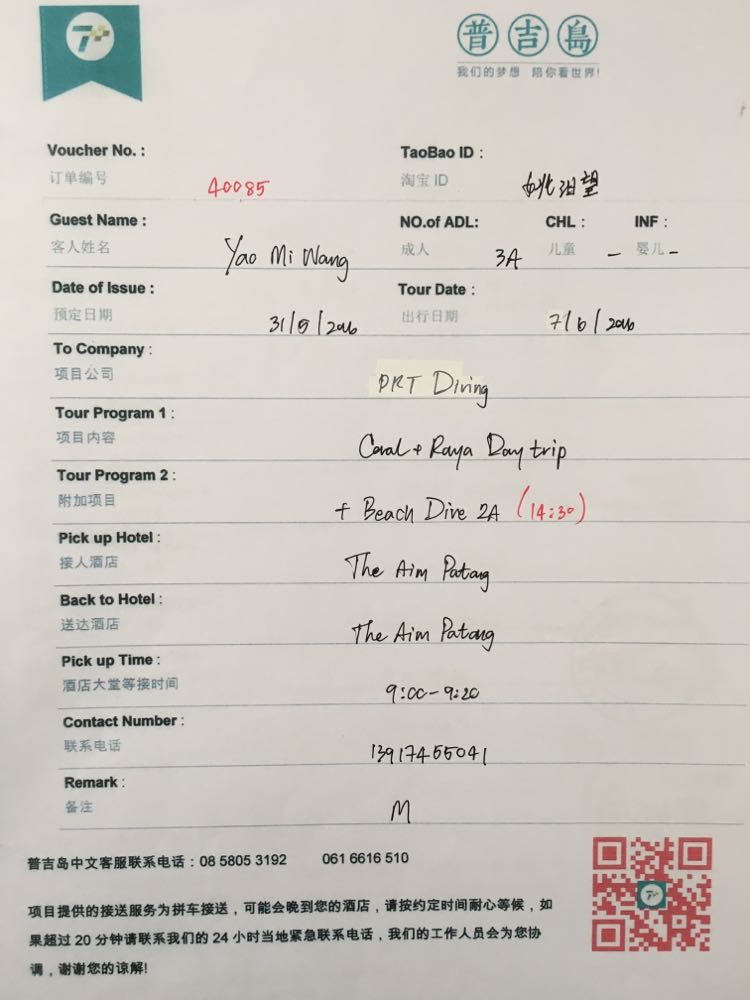 7+
普吉島
我们的梦想 陪你看世界!
Voucher No. : TaoBao ID :
订单编号 40085 淘宝 ID 姚泔望
Guest Name : NO.of ADL: CHL : INF :
客人姓名 Yao Mi Wang 成人 3A 儿童 - 婴儿 -
Date of Issue : Tour Date :
预定日期 31/5/2016 出行日期 7/6/2016
To Company :
项目公司 PRT Diving
Tour Program 1 :
项目内容 Coral + Raya Day trip
Tour Program 2 :
附加项目 + Beach Dive 2A (14:30)
Pick up Hotel :
接人酒店 The Aim Patong
Back to Hotel :
送达酒店 The Aim Patong
Pick up Time :
酒店大堂等接时间 9:00-9:20
Contact Number :
联系电话 13917455041
Remark :
备注 M
普吉岛中文客服联系电话：08 5805 3192 061 6616 510
项目提供的接送服务为拼车接送，可能会晚到您的酒店，请按约定时间耐心等候，如
果超过 20 分钟请联系我们的 24 小时当地紧急联系电话，我们的工作人员会为您协
调，谢谢您的谅解!